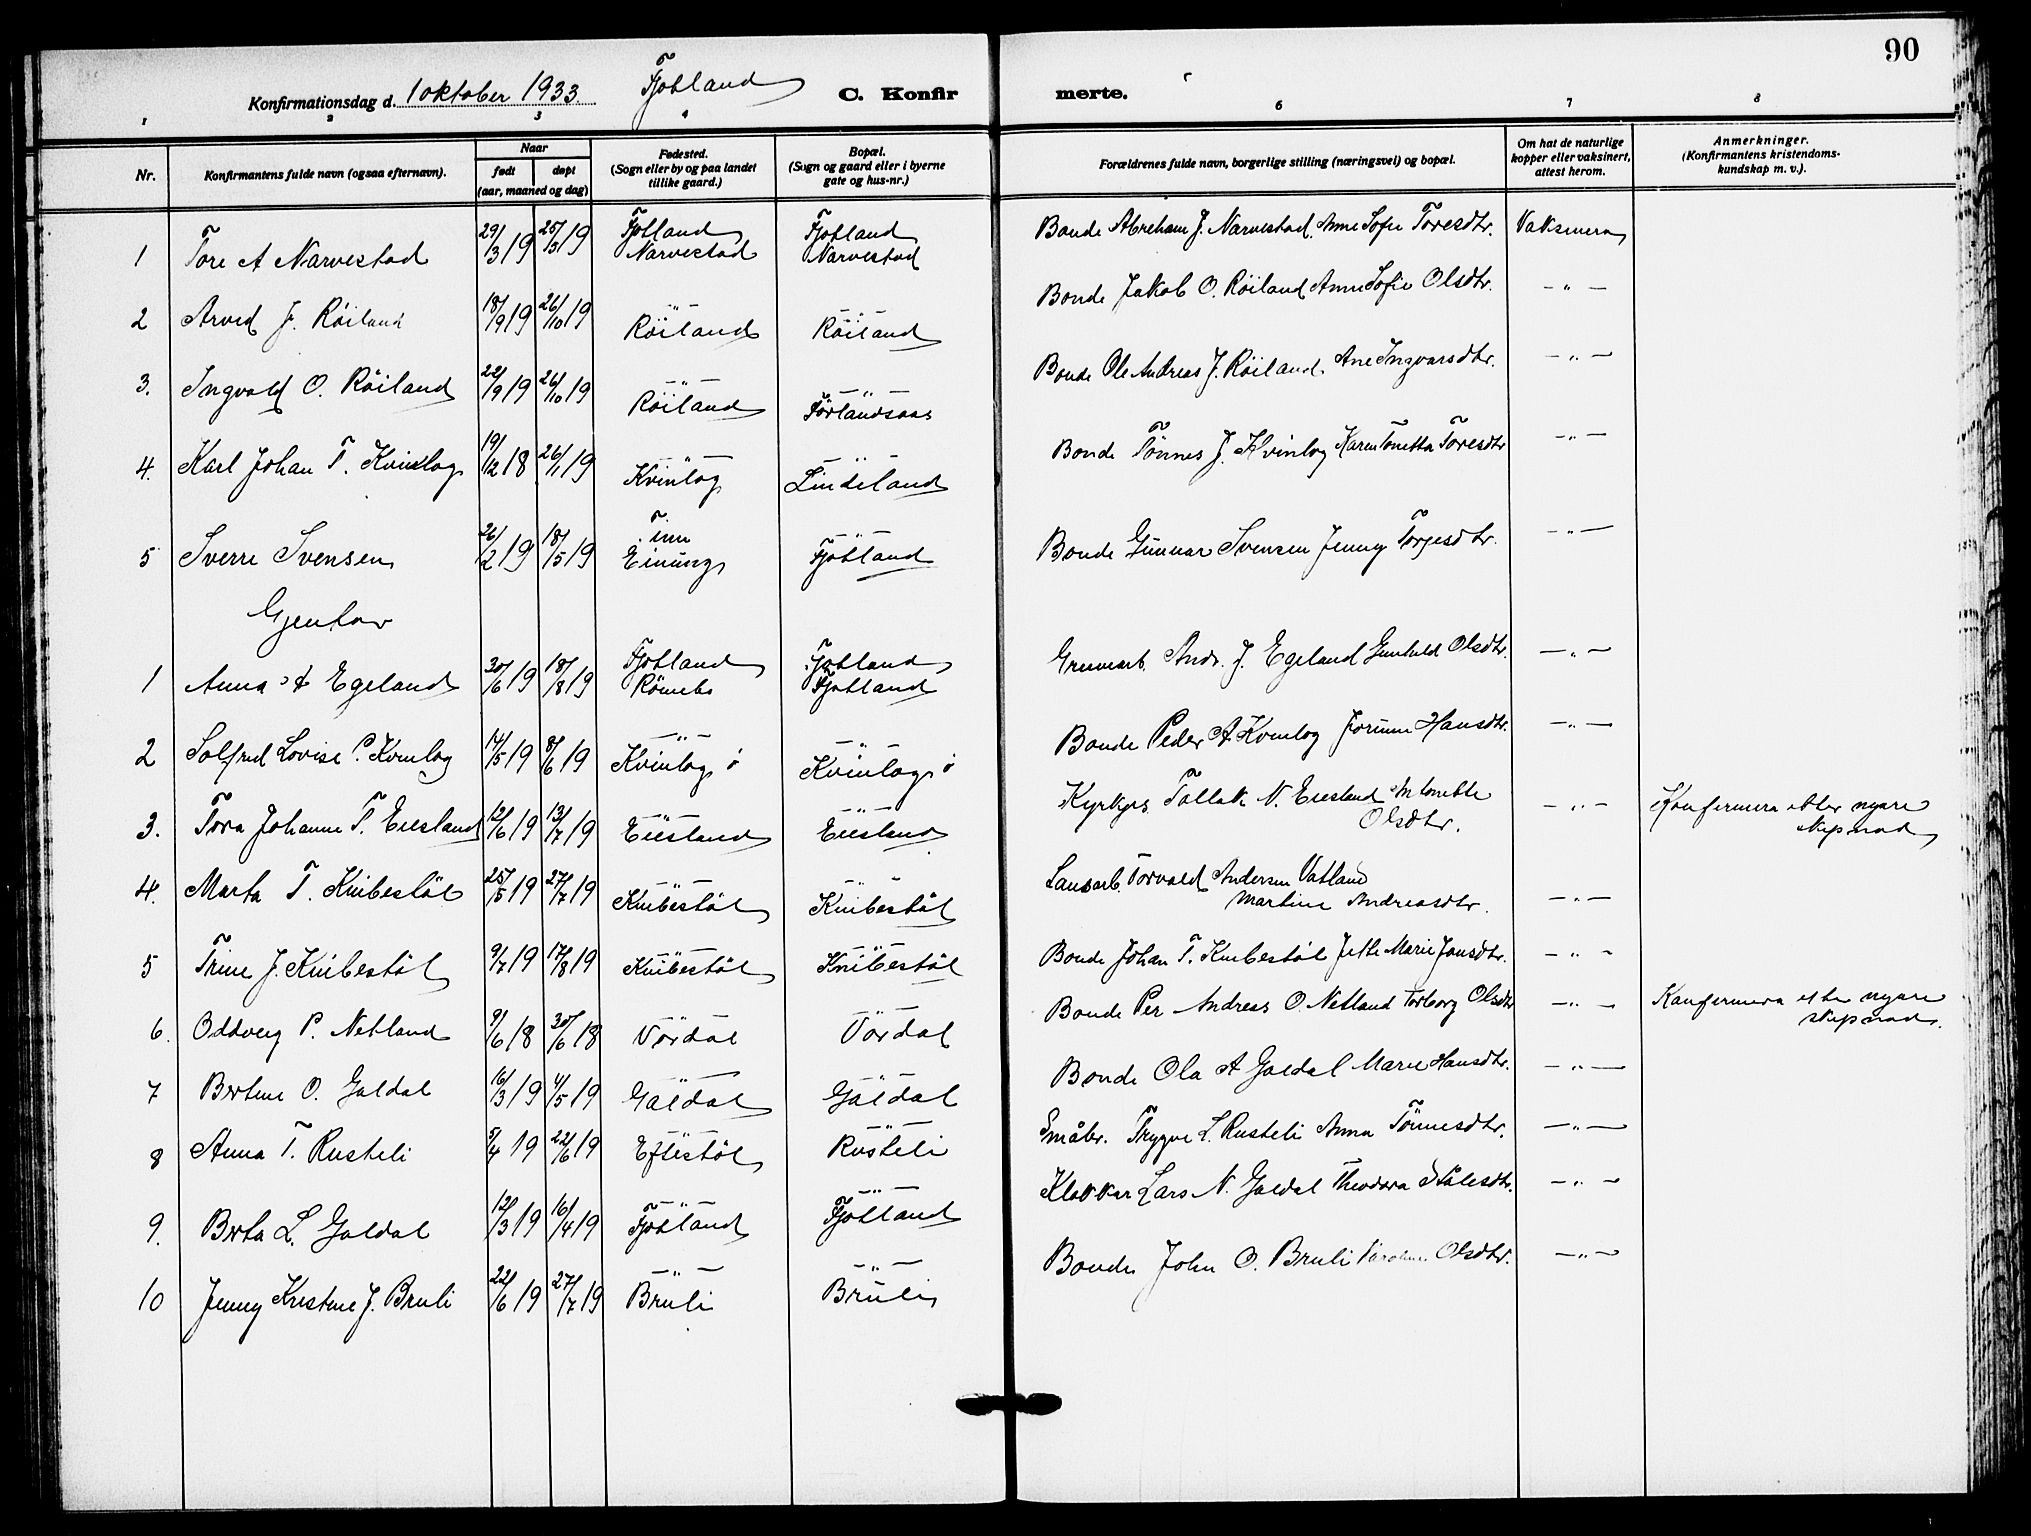 90
Konfirmationsdag d. 1 oktober 1933. Fjotland C. Konfir merte.
1 2 3 4 6 7 8
Nr. Konfirmantens fulde navn (ogsaa efternavn). Naar født døpt (aar, maaned og dag) Fødested. (Sogn eller by og paa landet tillike gaard.) Bopæl. (Sogn og gaard eller i byerne gate og hus-nr.) Forældrenes fulde navn, borgerlige stilling (næringsvei) og bopæl. Om hat de naturlige kopper eller vaksinert, attest herom. Anmerkninger. (Konfirmantens kristendoms-kundskap m. v.).
1 Tore A Narvestad 29/3 19 25/3 19 Fjotland Narvestad Fjotland Narvestad Bonde Abreham J. Narvestad. Anne Sofie Toresdtr. Vaksinera
2 Arved J. Röiland 18/9 19 26/10 19 — " — Röiland — " — Röiland Bonde Jakob O. Röiland Anne Sofie Olsdtr. — " —
3. Ingvald O. Röiland 22/9 19 26/10 19 — " — Röiland — " — Förlandsaas Bonde Ole Andreas J. Röiland. Ane Ingvarsdtr. — " —
4. Karl Johan T. Kvinlog 19/12 18 26/1 19 — " — Kvinlog — " — Lindeland Bonde Tönnes J. Kvinlog Karen Tonetta Toresdtr — " —
5 Sverre Svensen 26/2 19 18/5 19 Tinn Einung — " — Fjotland Bonde Gunnar Svensen Jenny Torjesdtr. — " —
Gjentor
1 Anna A Egeland 30/6 19 18/8 19 Fjotland Römebo Fjotland Fjotland Gruvearb. Andr. J. Egeland Gunhild Olsdtr. — " —
2 Solfrid Lovise P. Kvinlog 14/5 19 8/6 19 — " — Kvinlog ö — " — Kvinlog ö Bonde Peder A Kvinlog Jorunn Hansdtr. — " —
3. Tora Johanne T. Eiesland 12/6 19 13/7 19 — " — Eiesland — " — Eiesland Kyrkjes Tallak N. Eiesland Antonette Olsdtr. — " — Konfermera etter nyare skipnad
4. Marta T. Knibestöl 25/5 19 27/7 19 — " — Knibestöl — " — Knibestöl Lausarb. Torvald Andersen Vatland Martine Andreasdtr. — " —
5 Trine J. Knibestöl 9/7 19 17/8 19 — " — Knibestöl — " — Knibestöl Bonde Johan T. Knibestöl Jette Marie Jonsdtr. — " —
6. Oddveig P. Netland 9/6 18 30/6 18 — " — Vördal — " — Vördal Bonde Per Andreas O. Netland Torborg Olsdtr — " — Konfermera etter nyare skipnad.
7 Bertine O. Galdal 16/3 19 4/5 19 — " — Galdal — " — Galdal Bonde Ola A Galdal Marie Hansdtr. — " —
8 Anna T. Rusteli 5/4 19 22/6 19 — " — Eftestöl — " — Rusteli Småbr. Trygve L. Rusteli Anna Tönnesdtr. — " —
9. Berta L. Galdal 12/3 19 16/4 19 — " — Fjotland — " — Fjotland Klokkar Lars N. Galdal Theodora Ståledtr. — " —
10 Jenny Kristine J. Bruli 22/6 19 27/7 19 — " — Bruli — " — Bruli Bonde John O. Bruli Olsdtr. — " —